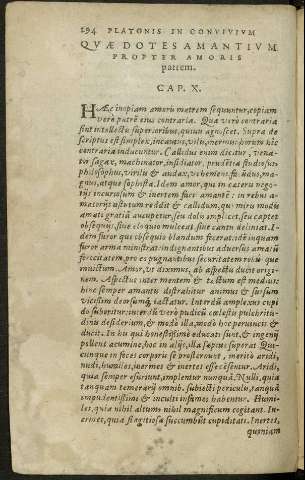 294 PLATONIS IN CONVIVIVM
QVÆ DOTES AMANTIVM
PROPTER AMORIS
patrem.
CAP. X.
HAEc inopiam amoris matrem sequuntur, copiam
verò patrẽ eius contraria. Quæ verò contraria
sint intellectu superioribus, quiuis agnoscet. Supra de
scriptus est simplex, incautus, vilis, inermis: horum hîc
contraria inducuntur. Callidus enim dicitur, vena-
tor sagax, machinator, insidiator, prudẽtiæ studiosus,
philosophus, virilis & audax, vehemens, facũdus, ma-
gnus, atque sophista. Idem amor, qui in cæteris nego-
tijs incuriosum & inertem facit amantẽ: in rebus a-
matorijs astutum reddit & callidum, qui miris modis
amati gratiã aucupetur, seu dolis implicet, seu captet
obsequijs, siue eloquio mulceat, siue cantu deliniat. I-
dem furor qui obsequijs blandum fecerat, idẽ inquam
furor arma ministrat: indignationis aduersùs amatũ
ferocitatem pro eo pugnantibus securitatem robúrque
inuictum. Amor, vt diximus, ab aspectu ducit origi-
nem. Aspectus inter mentem & tactum est medius:
hinc semper amantis distrahitur animus & sursum
vicissim deorsúmque iactatur. Interdũ amplexus cupi
do suboritur: interdũ verò pudici cælestis pulchritu-
dinis desiderium, & modò illa, modò hoc peruincit &
ducit. In his qui honestissimè educati sunt, & ingenij
pollent acumine, hoc: in alijs, illa sæpius superat. Qui-
cunque in feces corporis se prosternunt, meritò aridi,
nudi, humiles, inermes & inertes esse censentur. Aridi,
quia semper esuriunt, implentur nunquã. Nudi, quia
tanquam temerarij omnibus subiecti periculis, tanquã
impudentissimi & inculti infames habentur. Humi-
les, quia nihil altum, nihil magnificum cogitant. In-
ermes, quia flagitiosæ succumbũt cupiditati. Inertes,
quoniam